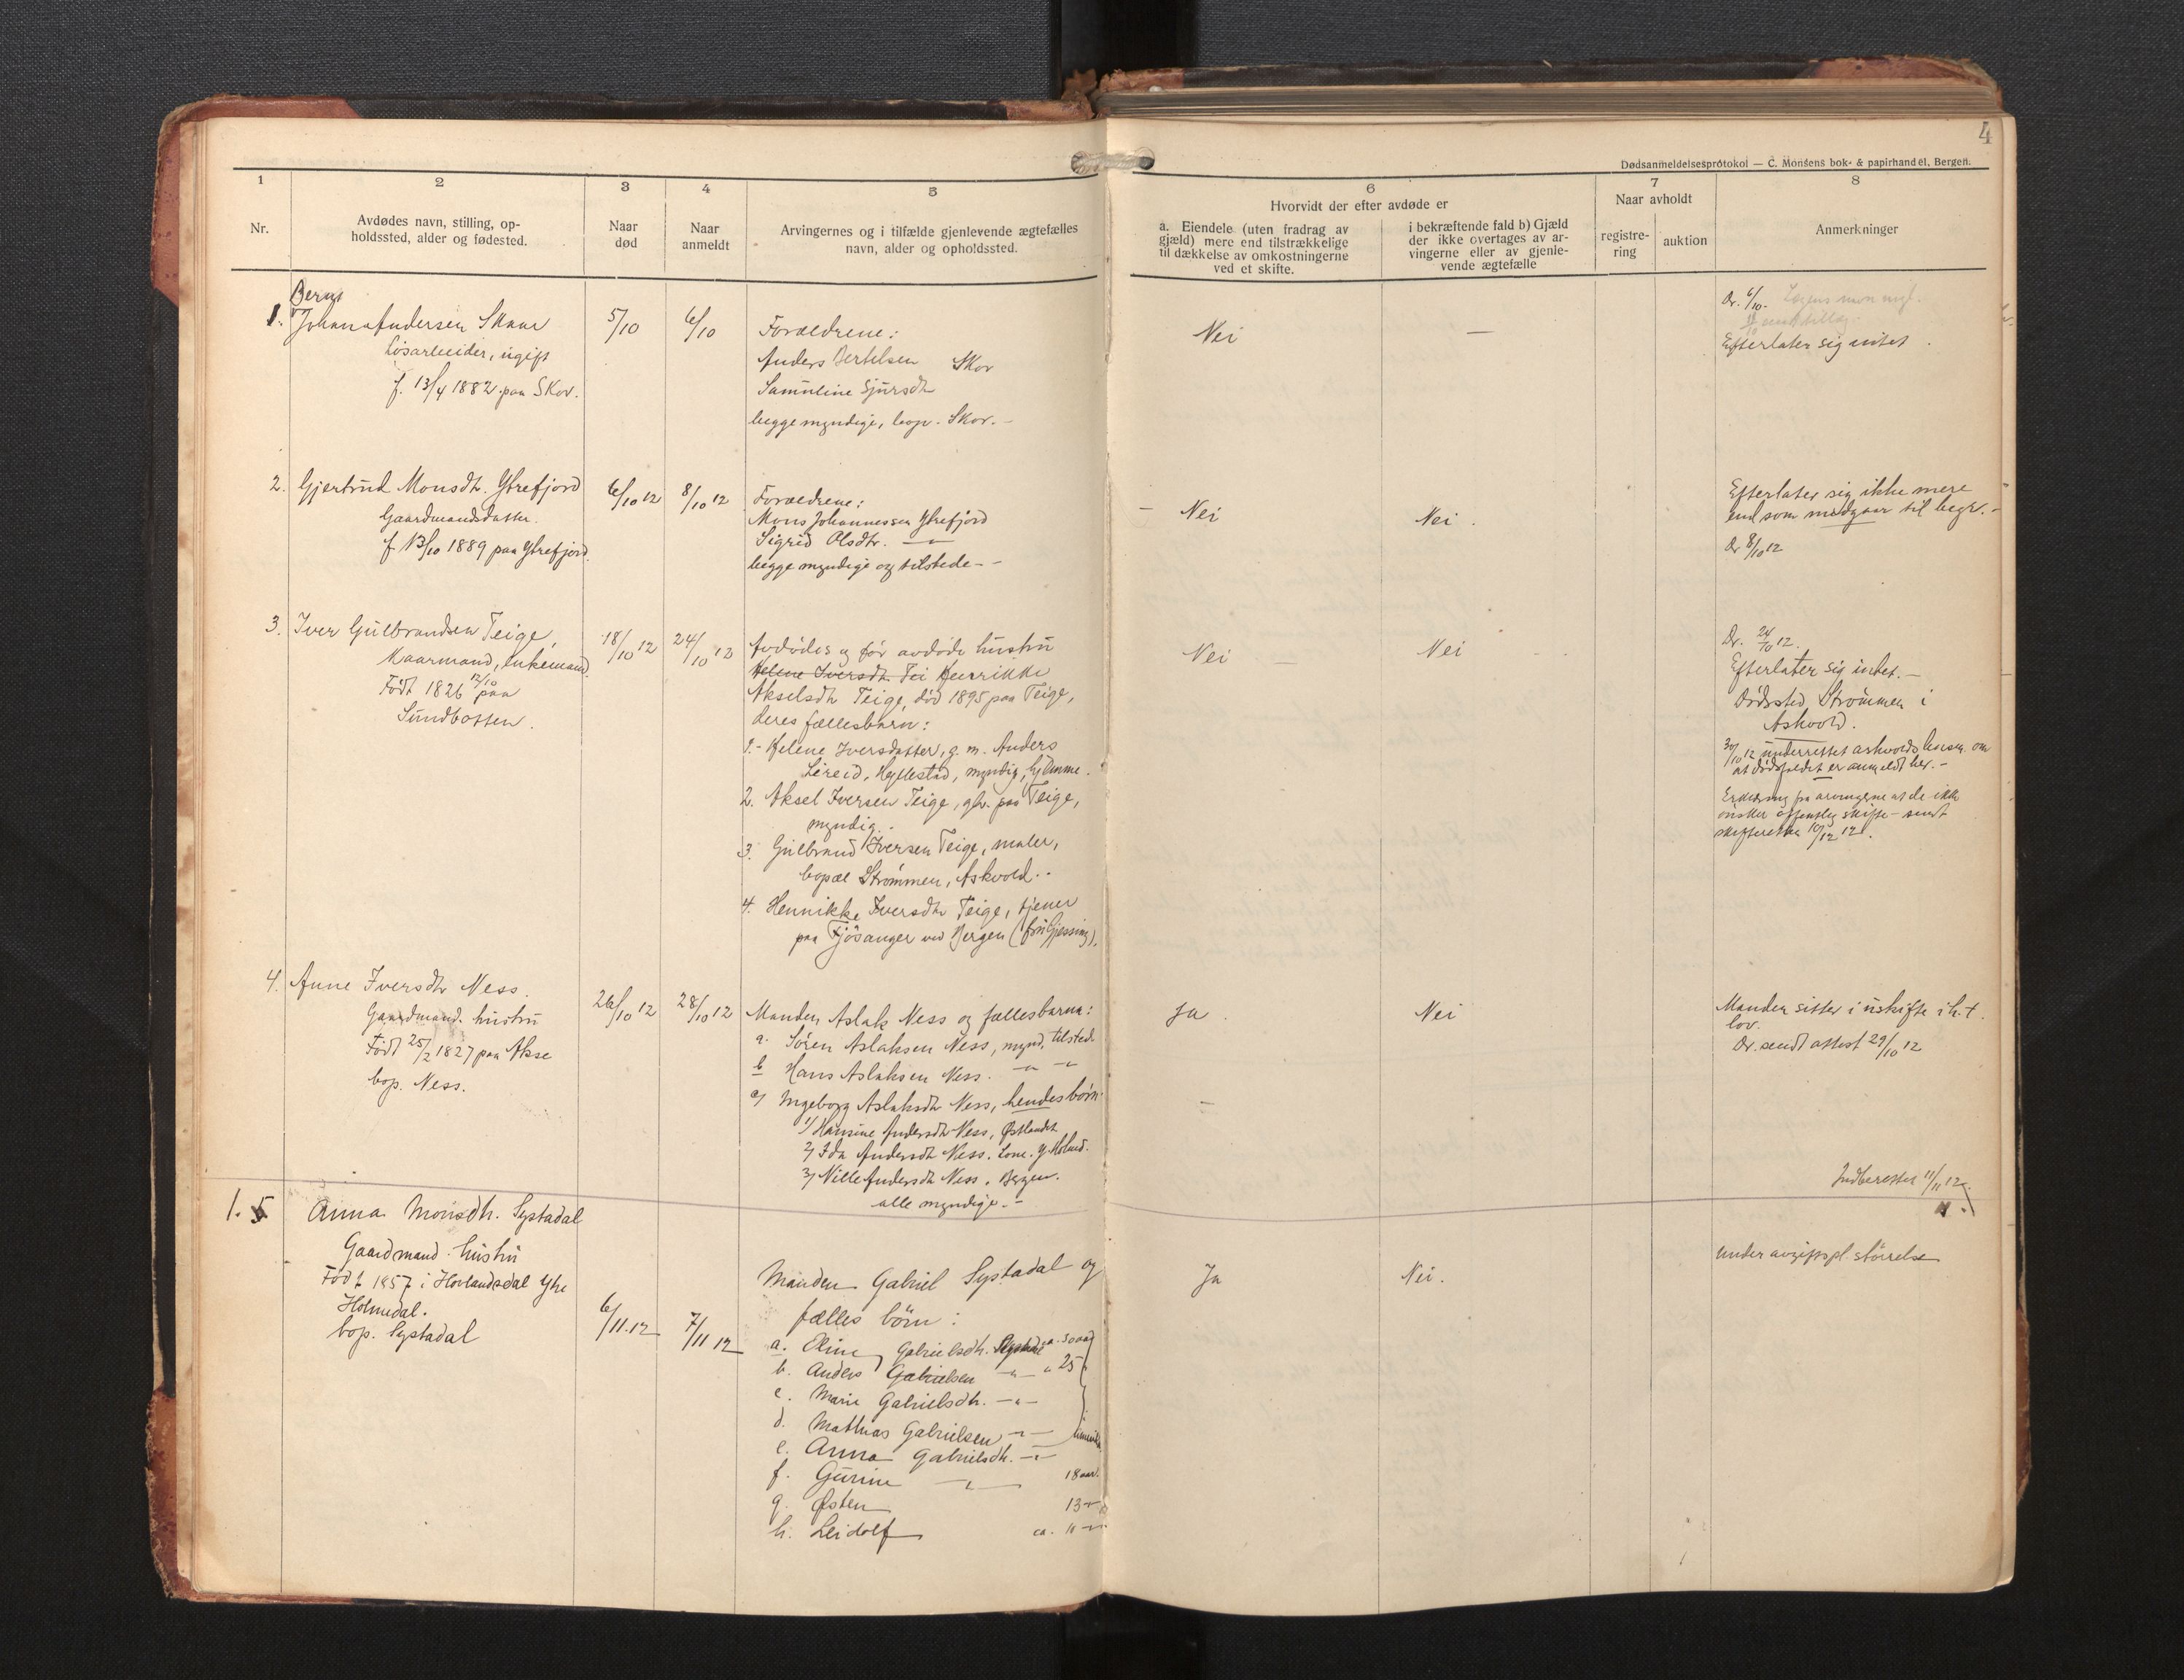 4
Dødsanmeldelsesprotokol — C. Monsens bok- & papirhandel, Bergen.
1
Nr.
2
Avdødes navn, stilling, op-
holdssted, alder og fødested.
3
Naar
død
4
Naar
anmeldt
5
Arvingernes og i tilfælde gjenlevende ægtefælles
navn, alder og opholdssted.
6
Hvorvidt der efter avdøde er
a. Eiendele (uten fradrag av
gjæld) mere end tilstrækkelige
til dækkelse av omkostningerne
ved et skifte.
i bekræftende fald b) Gjæld
der ikke overtages av ar-
vingerne eller av gjenle-
vende ægtefælle
7
Naar avholdt
registre-
ring
auktion
8
Anmerkninger
1.
Bernt
Johan Andersen Skaar
Løsarbeider, ugift
f. 13/4 1882 paa Skor.
5/10
6/10
Forældrene:
Anders Bertelsen Skor
Samuline Sjursdtr
begge myndige, bop. Skor. -
Nei
—
Dr. 6/10.
Efterlater sig intet.
2.
Gjertrud Monsdtr. Ytrefjord
Gaardmandsdatter.
f 13/10 1889 paa Ytrefjord.
6/10 12
8/10 12
Forældrene:
Mons Johannessen Ytrefjord
Sigrid Olsdtr. — " —
begge myndige og tilstede - -
Nei
Nei.
Efterlater sig ikke mere
end som medgaar til begr. -
Dr 8/10 12
3.
Iver Gulbrandsen Teige,
Kaarmand, enkemand.
Født 1826 12/10 paa
Sundbotten.
18/10 12
24/10 12
Avdødes og før avdøde hustru
Helene Iversdtr. Tei Henrikke
Akselsdtr Teige, død 1895 paa Teige,
deres fællesbarn:
1. - Helene Iversdatter, g. m. Anders
Lereid, Hyllestad, myndig, hjemme.
2. Aksel Iversen Teige, gbr. paa Teige,
myndig. -
3. Gulbrand Iversen Teige, maler,
bopæl Strømmen, Askvold. -
4. Henrikke Iversdtr Teige, tjener
paa Fjøsanger ved Bergen (fru Gjessing).
Nei
Nei
Dr. 24/10 12.
Efterlater sig intet. —
Dødssted Strømmen i
Askvold.
30/10 12 underrettet askvolds lensm. om
at dødsfaldet er anmeldt her. -
Erklæring fra arvingerne at de ikke
ønsker offentlig skifte - sendt
skifteretten 10/12 12.
4.
Anne Iversdtr Ness.
Gaardmand. hustru
Født 25/2 1827 paa Akse
bop. Ness.
26/10 12
28/10 12
Manden Aslak Ness og fællesbarna:
a. Søren Aslaksen Ness, mynd. tilsted.
b Hans Aslaksen Ness. — " —
c) Ingeborg Aslaksdtr Ness, hendes børn:
1) Hansine Andersdtr Ness, Østlandet
2) Ida Andersdtr Ness.
3) Nille Andersdtr Ness, Bergen.
alle myndige. -
Ja.
Nei
Manden sitter i uskifte i h.t.
lov.
Dr. sendt attest 29/10 12
Indberettet 11/11 12.
1. 5
Anna Monsdtr. Systadal
Gaardmand. hustru
Født 1857 i Hovlandsdal Ytre
Holmedal.
bop. Systadal
6/11.12
7/11 12
Manden Gabriel Systadal og
fælles børn:
a. Eline Gabrielsdtr. Systadal ca. 30 aar
b. Anders Gabrielsen — " — " 25
c. Marie Gabrielsdtr. — " —
d. Mathias Gabrielsen — " —
e. Anna Gabrielsdtr. — " —
f. Gurine — " — 18 aar.
g. Østen 13 "
h. Leidolf ca. 11 "
Ja
Nei.
under avgiftspl. størrelse